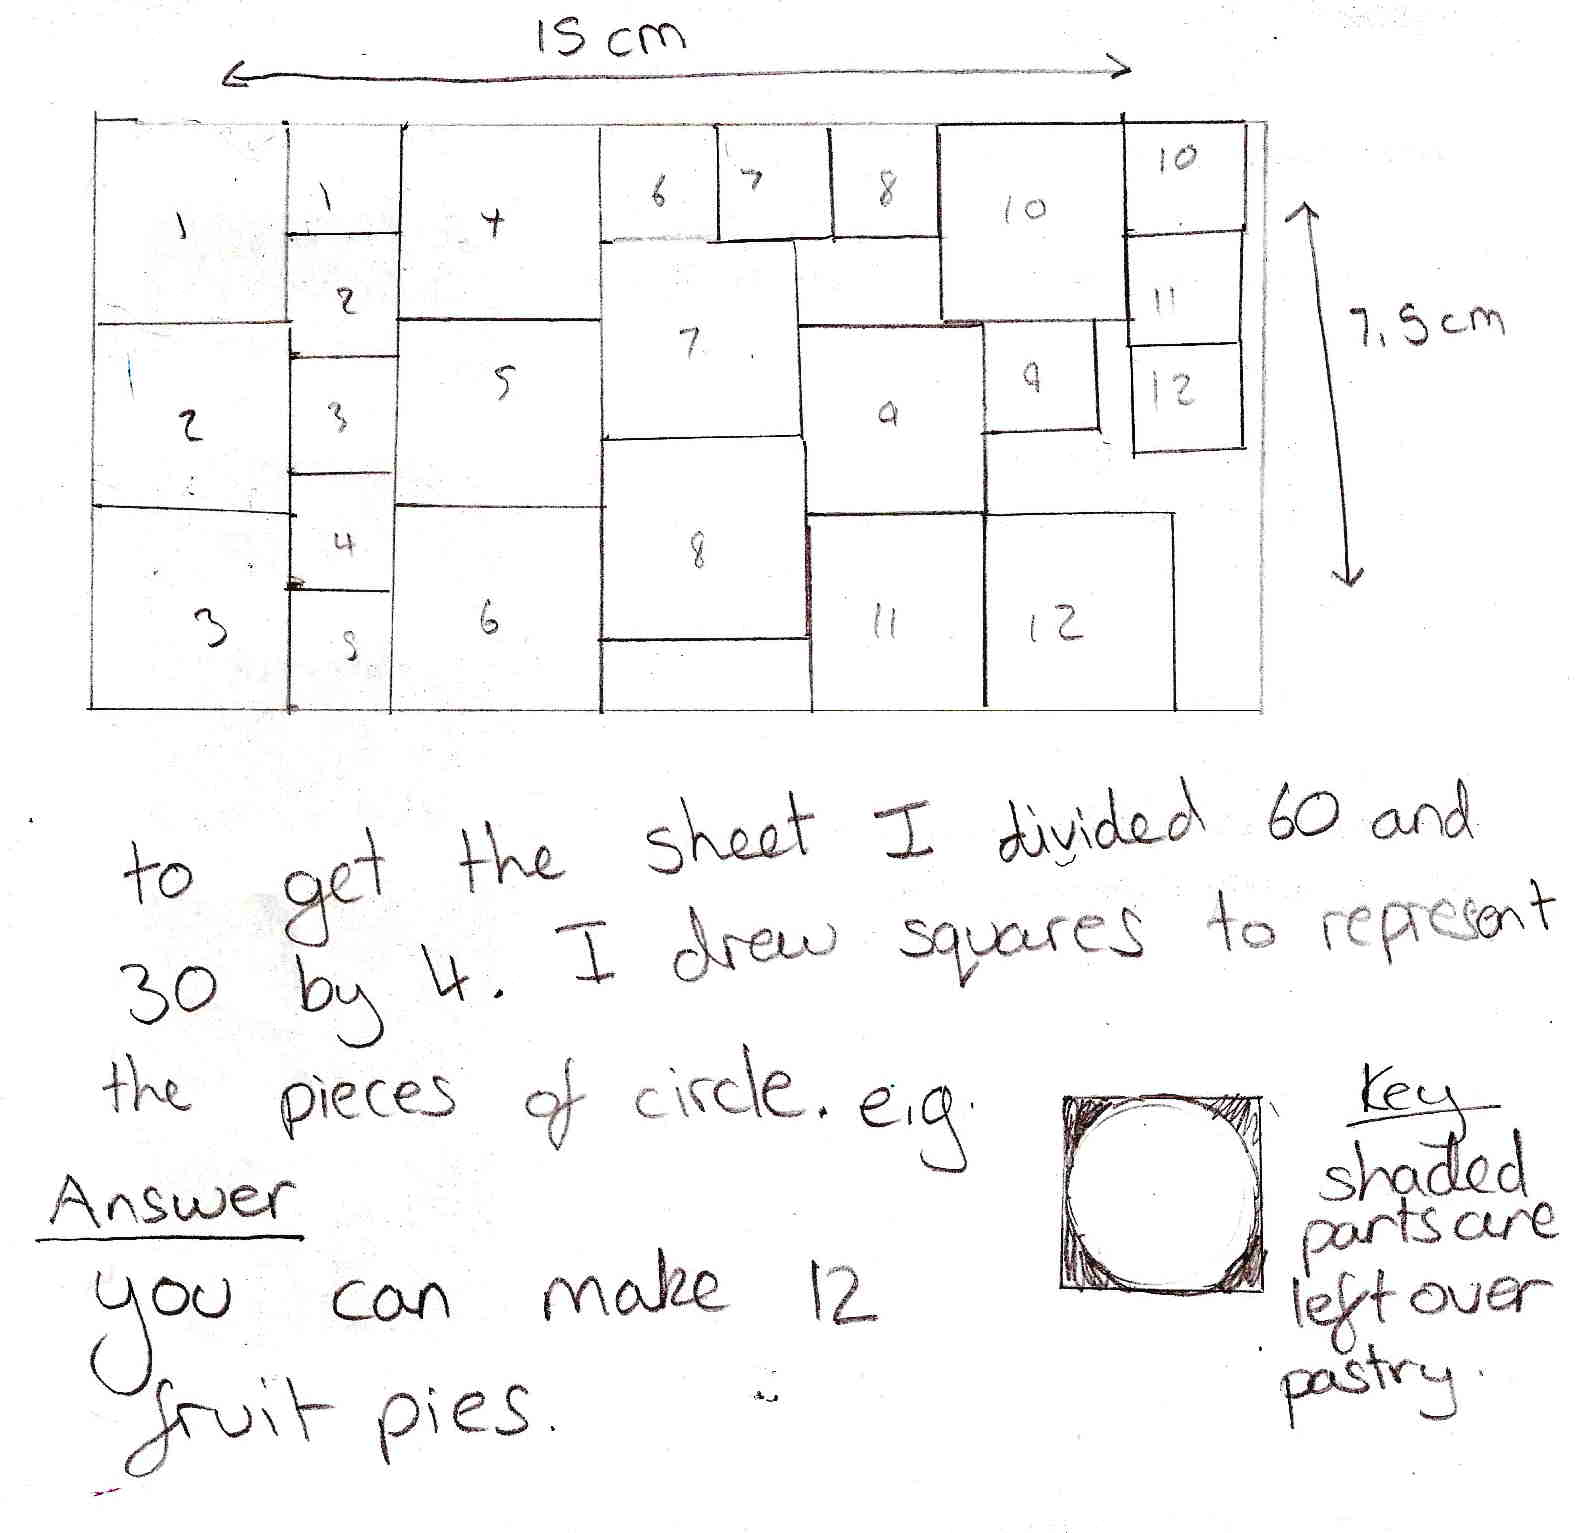 15 cm
1 1 4 6 7 8 10 10
2 7.5cm
2 3 5 7 9 9 11 12
3 4 6 8 11 12
5
to get the sheet I divided 60 and
30 by 4. I drew squares to represent
the pieces of circle. e.g.
Key
shaded
parts are
left over
pastry.
Answer
you can make 12
fruit pies.